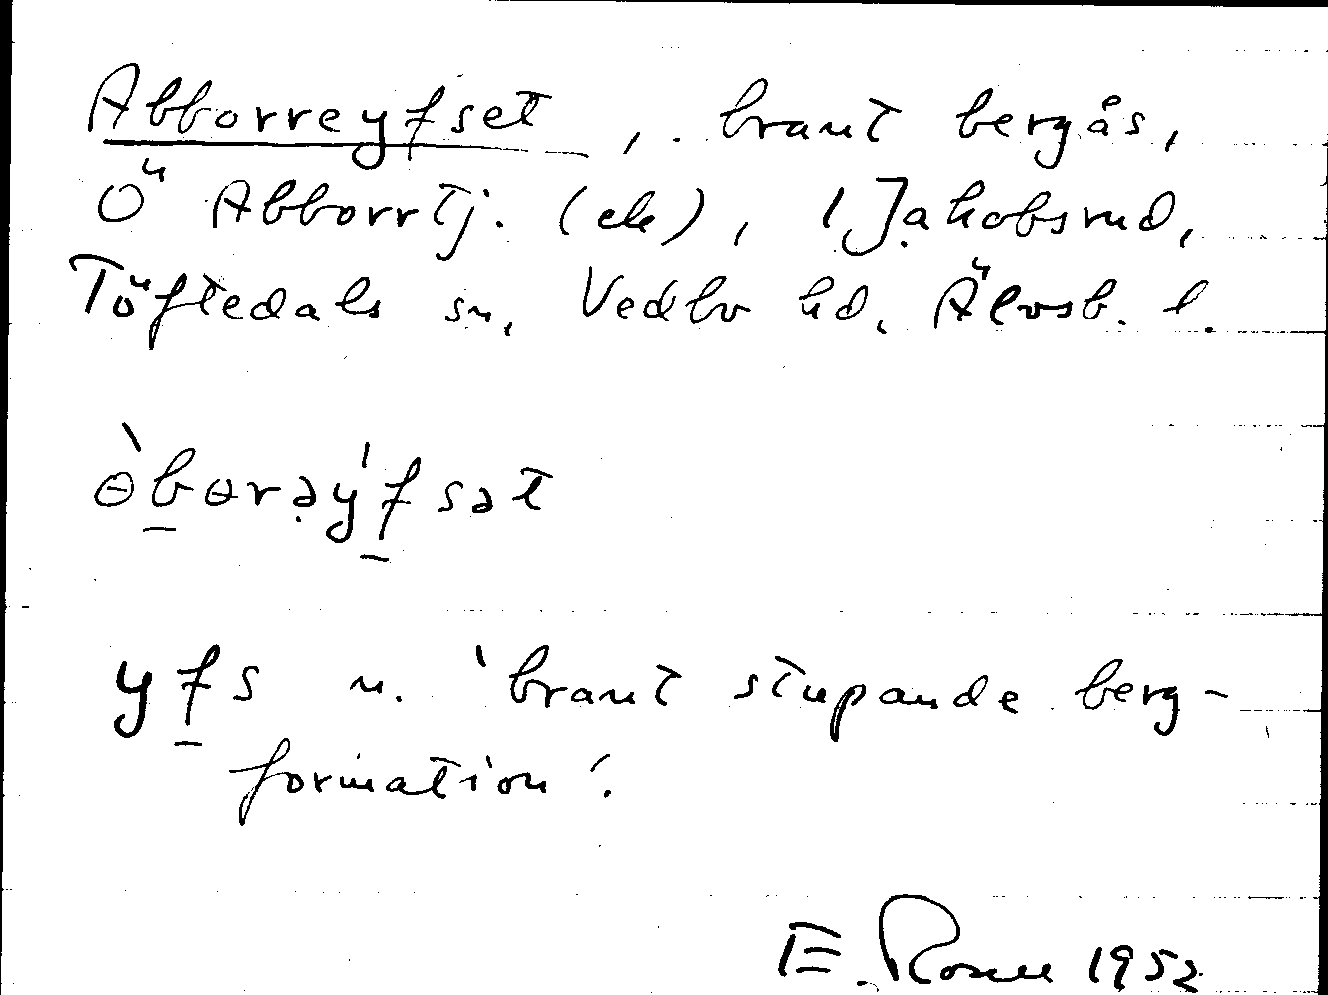 Abborreyfset, brant bergås,
Ö Abborrtj. (ek), 1 Jakobsrud,
Töftedals sn, Vedbo hd, Älvsb. l.
òbɵrəy'fsət
yfs n. 'brant stupande berg-
formation'.
E. Rosell 1952